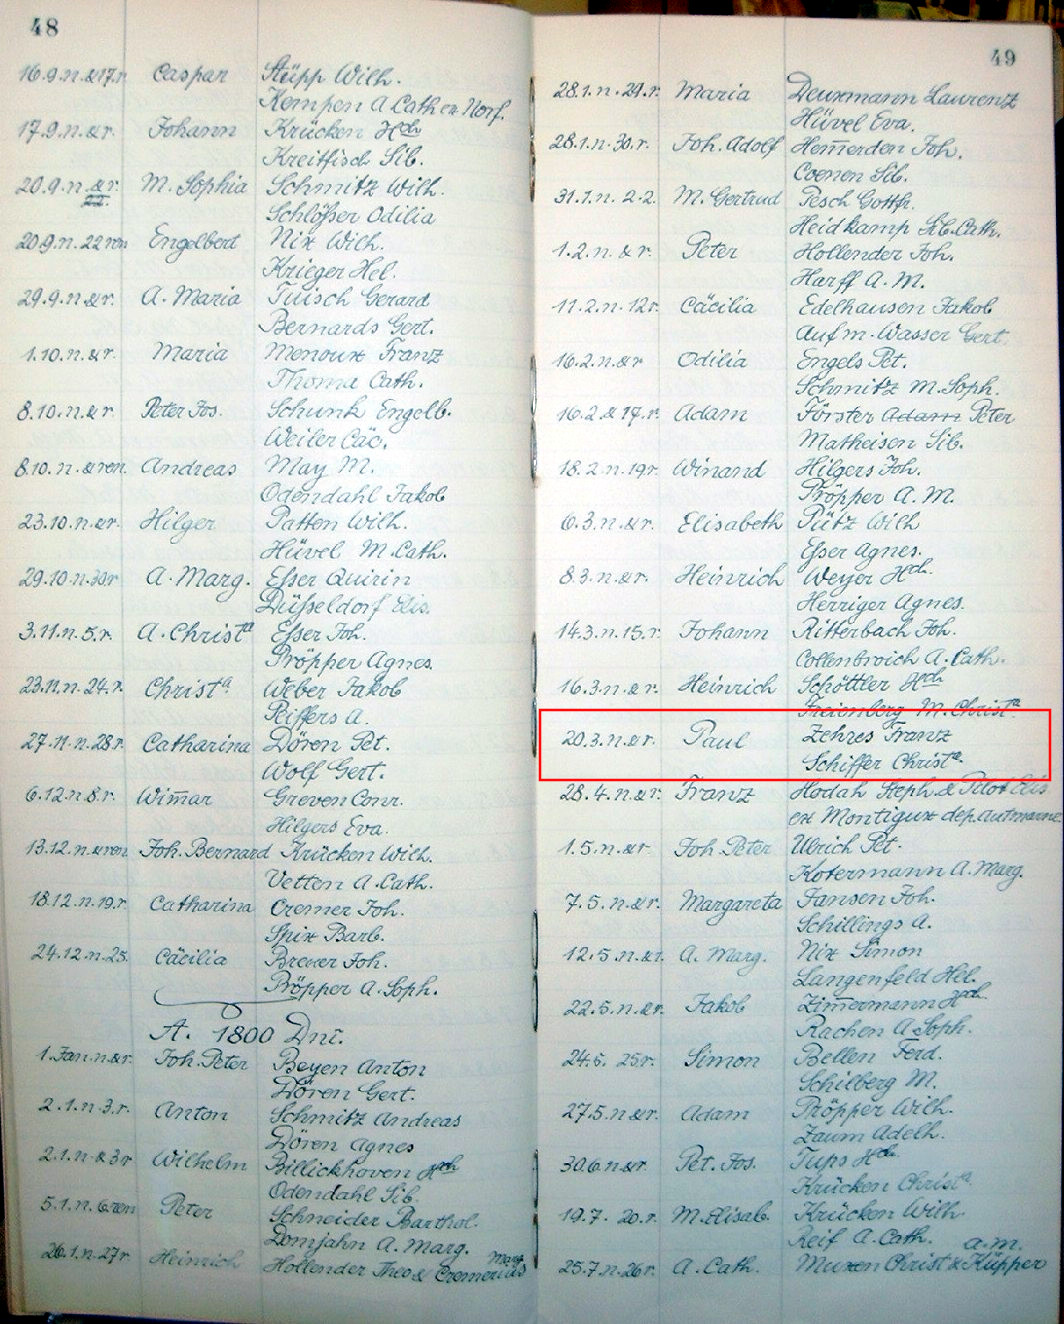 48
16.9.n.&17.r. Caspar Stüpp Wilh.
Kempen A Cath ex Norf.
17.9.n.&r. Johann Krücken Hch
Kreitfisch Sib.
20.9.n.&r. M. Sophia Schmitz Wilh.
Schlößer Odilia
20.9.n. 22 ren Engelbert Nix Wilh.
Krieger Hel.
29.9.n.&r. A. Maria Tuisch Gerard
Bernards Gert.
1.10.n.&r. Maria Menoux Franz
Thoma Cath.
8.10.n.&r Peter Jos. Schunk Engelb.
Weiler Cäc.
8.10.n.&ren. Andreas May M.
Odendahl Jakob
23.10.n.&r. Hilger Patten Wilh.
Hüvel M. Cath.
29.10.n.30r A. Marg. Eßer Quirin
Düßeldorf Elis.
3.11.n.5.r. A. Christa Eßer Joh.
Pröpper Agnes.
23.11.n.24.r. Christa Weber Jakob
Peiffers A.
27.11.n.28r. Catharina Dören Pet.
Wolf Gert.
6.12.n.8.r. Wim̄ar Greven Conr.
Hilgers Eva.
13.12.n.&ren Joh. Bernard Krücken Wilh.
Vetten A. Cath.
18.12.n.19.r. Catharina Cremer Joh.
Spix Barb.
24.12.n.25. Cäcilia Brewer Joh.
Pröpper A. Soph.
A. 1800 Dni.
1.Jan.n.&r. Joh. Peter Beyen Anton
Dören Gert.
2.1.n.3.r. Anton Schmitz Andreas
Dören Agnes
2.1.n.&3r Wilhelm Billickhoven Hch
Odendahl Sib.
5.1.n.6.ren Peter Schneider Barthol.
Domjahn A. Marg.
26.1.n.27r Heinrich Hollender Theo & Cremerius Marg.
49
28.1.n.29.r. Maria Deuxmann Laurenz
Hüvel Eva.
28.1.n.30.r. Joh. Adolf Hem̄erden Joh.
Coenen Sib.
31.1.n.2.2. M. Gertrud Pesch Gottfr.
Heidkamp Sib. Cath.
1.2.n.&r. Peter Hollender Joh.
Harff A. M.
11.2.n.12r. Cäcilia Edelhausen Jakob
Aufm-Wasser Gert.
16.2.n.&r Odilia Engels Pet.
Schmitz M. Soph.
16.2.&17.r. Adam Förster Adam Peter
Matheisen Sib.
18.2.n.19r. Winand Hilgers Joh.
Pröpper A. M.
6.3.n.&r. Elisabeth Pütz Wilh
Eßer Agnes.
8.3.n.&r. Heinrich Weyer Hch.
Herriger Agnes.
14.3.n.15.r. Johann Ritterbach Joh.
Collenbroich A. Cath.
16.3.n.&r. Heinrich Schöttler Hch
Freienberg M. Christa.
20.3.n.&r. Paul Zehres Franz
Schiffer Christa.
28.4.n.&r. Franz Hodah Steph. & Pilot Elis
ex Montigux dep.
1.5.n.&r. Joh. Peter Ulrich Pet.
Kotermann A. Marg.
7.5.n.&r. Margareta Jansen Joh.
Schillings A.
12.5.n.&r. A. Marg. Nix Simon
Langenfeld Hel.
22.5.n.&r. Jakob Zim̄ermann Hch
Rachen A. Soph.
24.5. 25r. Simon Bellen Ferd.
Schilberg M.
27.5.n.&r. Adam Pröpper Wilh.
Zaum Adelh.
30.6.n.&r. Pet. Jos. Tups Hch.
Krücken Christa.
19.7. 20.r. M. Elisab. Krücken Wilh.
Reif A. Cath.
25.7.n.26r. A. Cath. Muxen Christ & Küpper A.M.